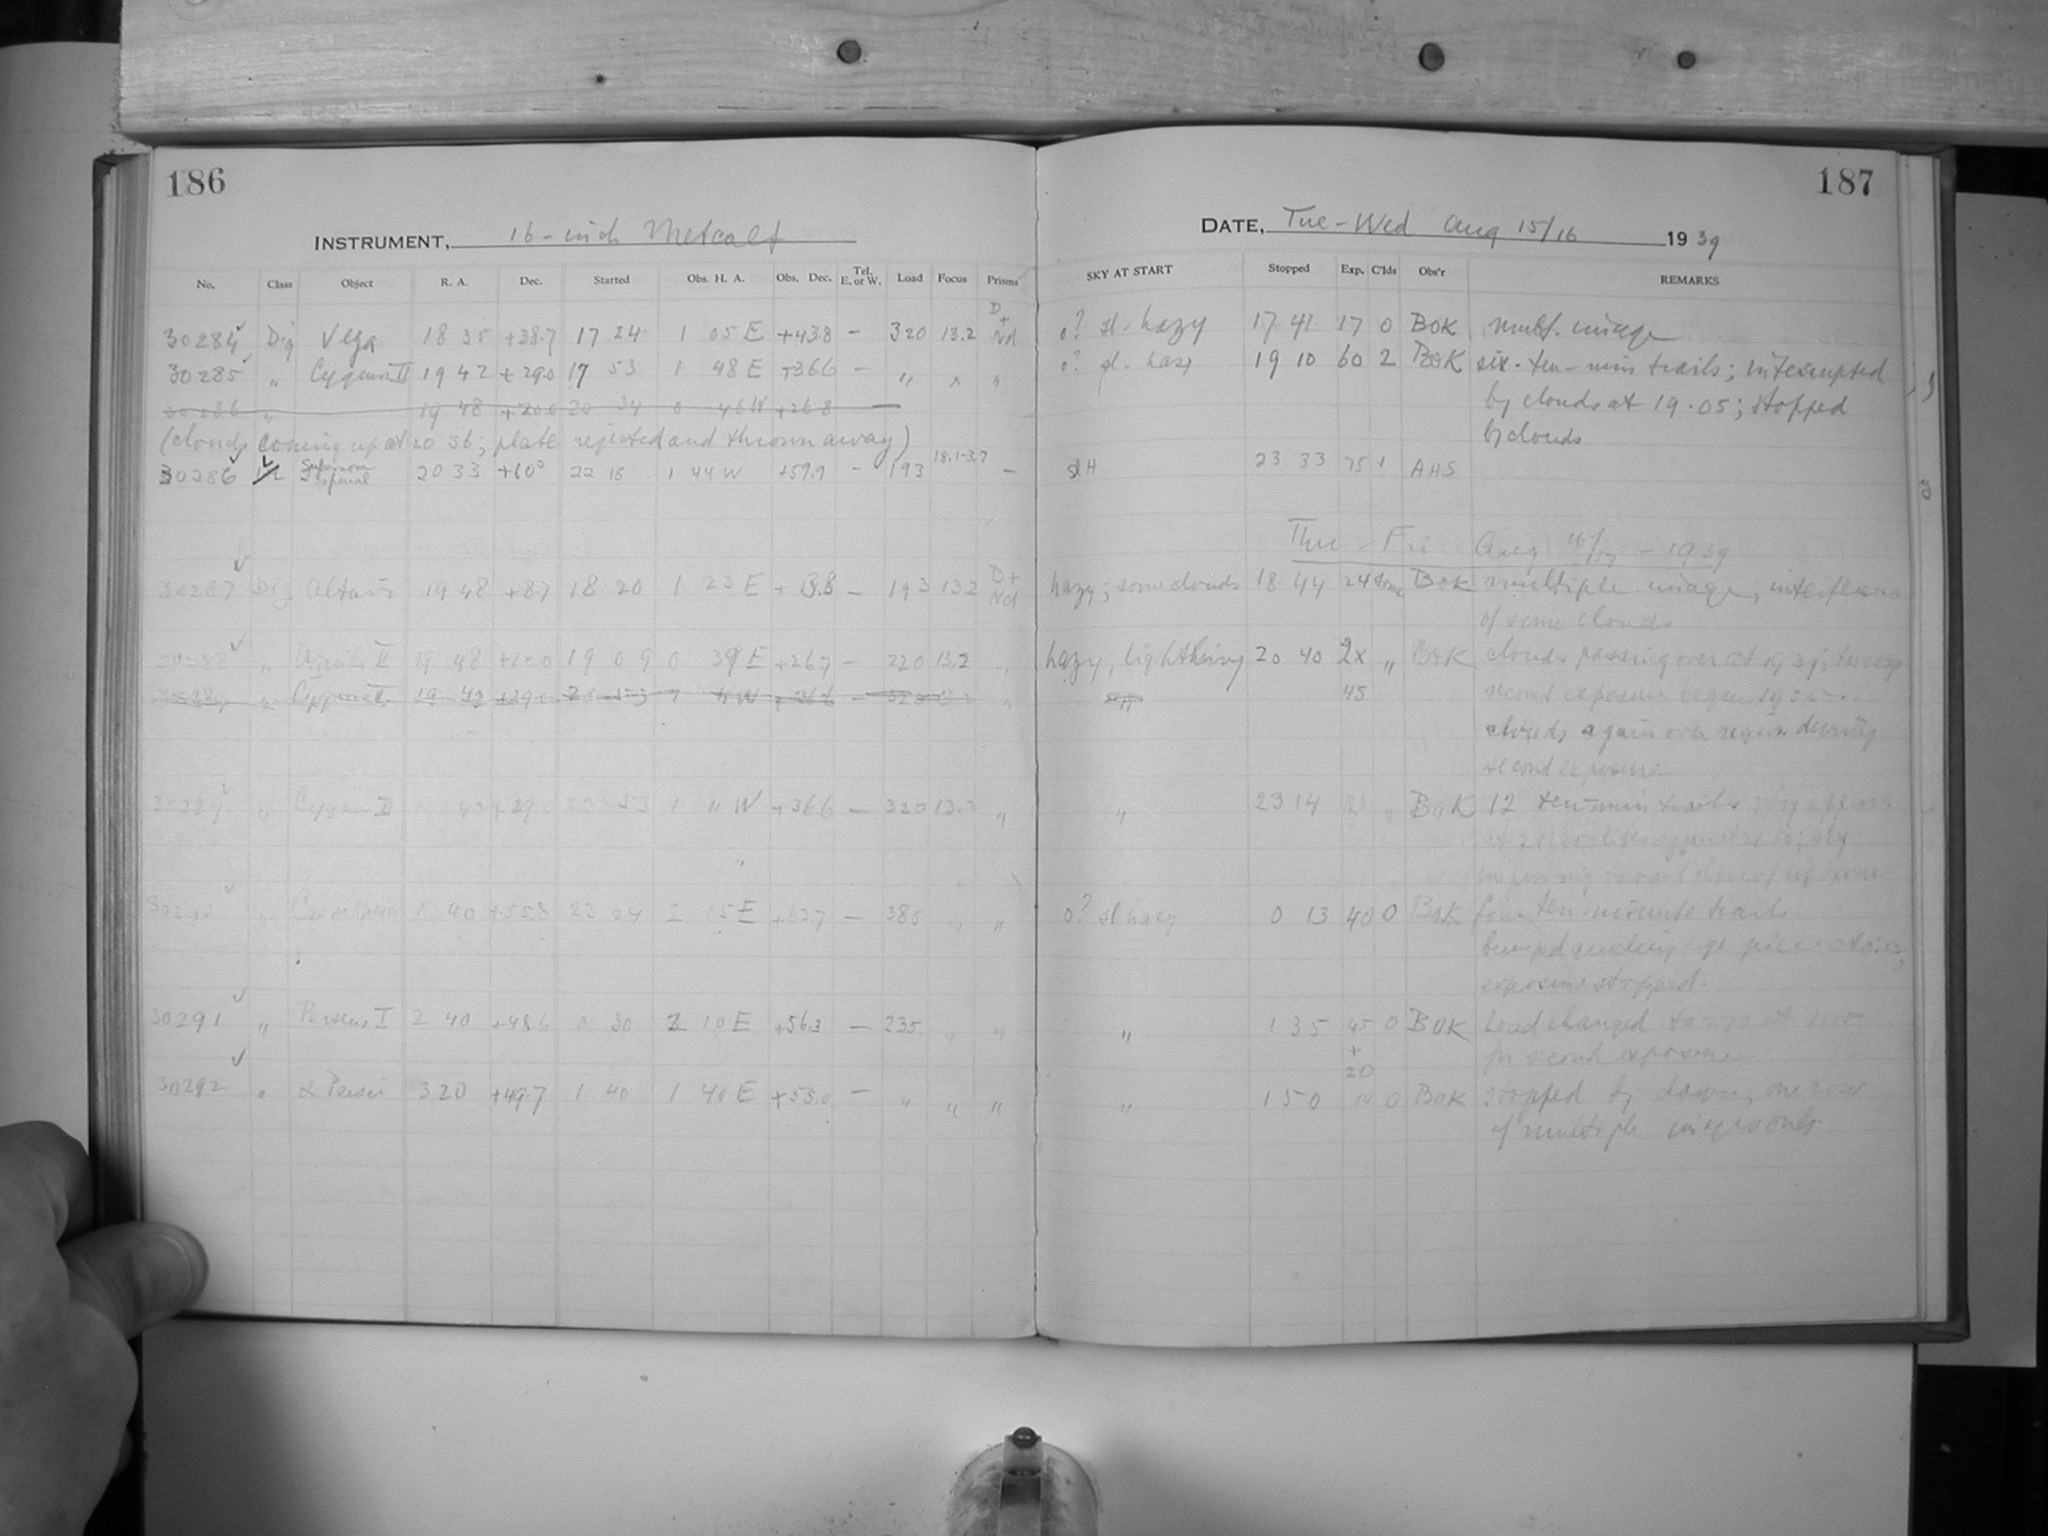 186
INSTRUMENT, 16-inch Metcalf
No. Class Object R. A. Dec. Started Obs. H. A. Obs. Dec. Tel. E. or W. Load Focus Prisms
30284 Dig Vega 18 35 +38.7 17 24 1 05 E +43.8 - 320 13.2 D + Nd
30285 " Cygnus II 19 42 +29.0 17 53 1 48 E +36.6 - " " "
30286 " 19 48 +20.0 20 34 0 46 W +26.8 -
(clouds coming up at 20 36; plate rejected and thrown away)
30286 Supernova special 20 33 +60° 22 18 1 44 W +59.9 - 193 18.1-3.7 -
30287 Dig Altair 19 48 +8.7 18 20 1 23 E + 13.8 - 193 13.2 D + Nd
30288 " II 19 48 +20.0 19 09 0 39 E +26.7 - 220 13.2 "
30289 " Cygnus II 19 42 +29.0 20 53 1 11 W +36.6 - 320
30289 " Cygnus II 42 +29. 20 53 1 11 W +36.6 - 320 13.2 "
30290 " 1 40 +55.8 23 24 2 15 E +63.7 - 385 " "
30291 " Perseus I 2 40 +48.6 0 30 2 10 E +56.3 - 235 " "
30292 " α Persei 3 20 +49.7 1 40 1 40 E +55.0 - " " "
187
DATE, Tue-Wed Aug 15/16 1939
SKY AT START Stopped Exp. C'lds Obs'r REMARKS
0? sl. hazy 17 41 17 0 BOK mult. image
0? sl. hazy 19 10 60 2 BOK six-ten-min trails; interrupted
by clouds at 19.05; stopped
by clouds
sl H 23 33 75 1 AHS
Thu - Fri Aug 16/17 - 1939
hazy; some clouds 18 44 24 some BOK multiple image, interference
of some clouds
hazy, lightning 20 40 2x 45 " BOK clouds passing over at 19 39; two exp
second exposure began 19 55
clouds again over region during
second exposure
" 23 14 " BOK 12 ten-min trails;
0? sl hazy 0 13 40 0 BOK four ten-minute trails
exposure stopped.
" 1 35 45 + 20 0 BOK Load changed to
for second exposure
" 1 50 10 0 BOK stopped by dawn; one row
of multiple images only